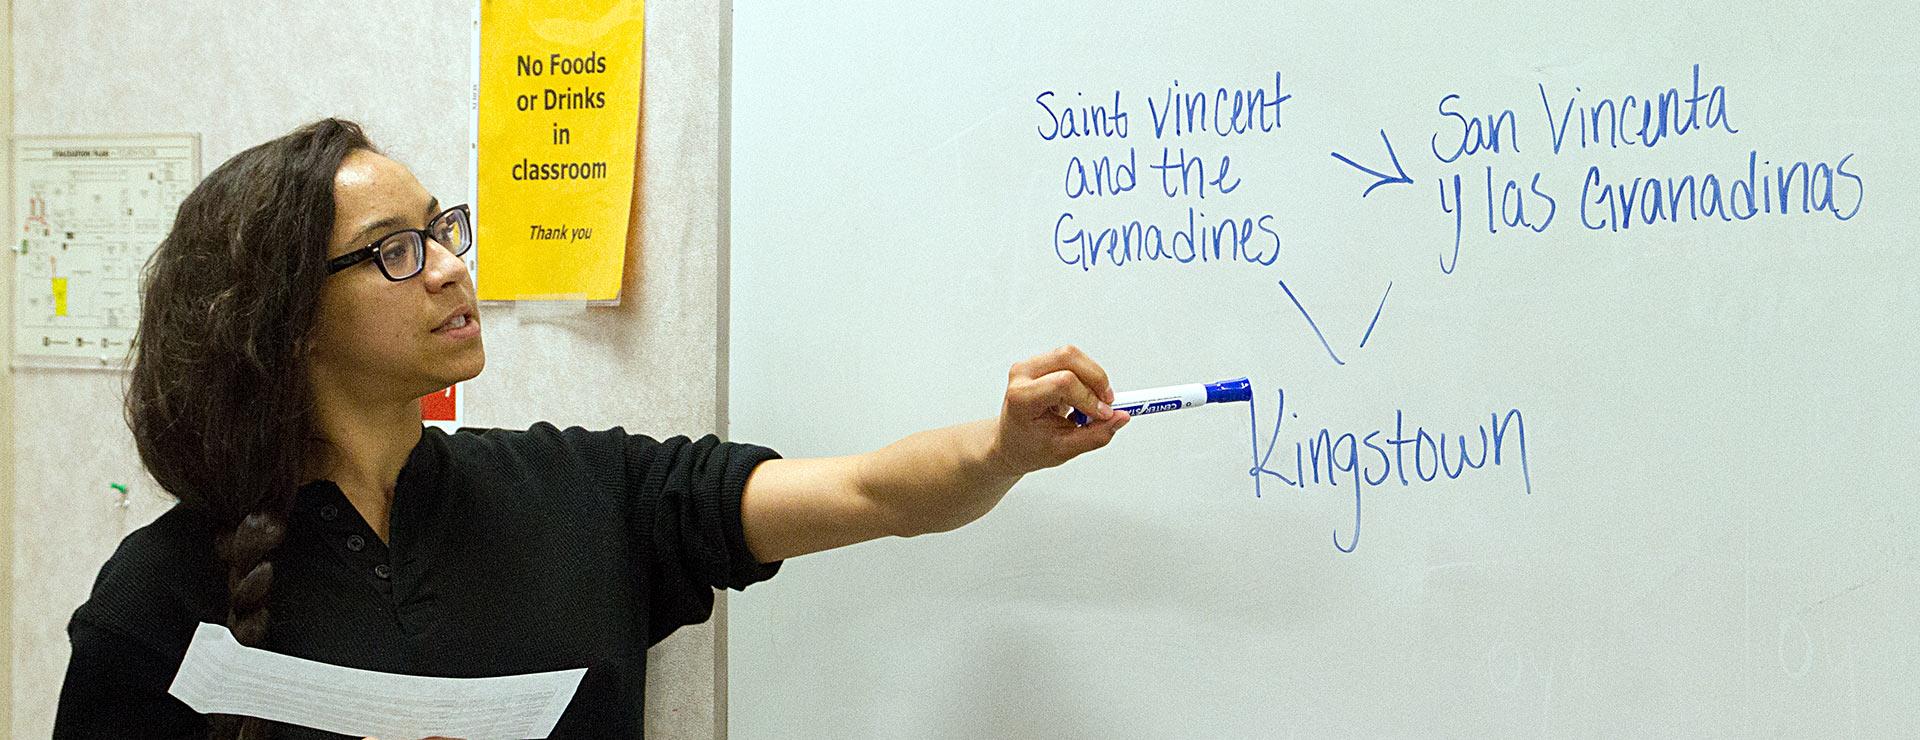 No Foods
or Drinks
in
classroom
Thank you
EVACUATION PLAN
Saint Vincent
and the
Grenadines
San Vincenta
y las Granadinas
Kingstown